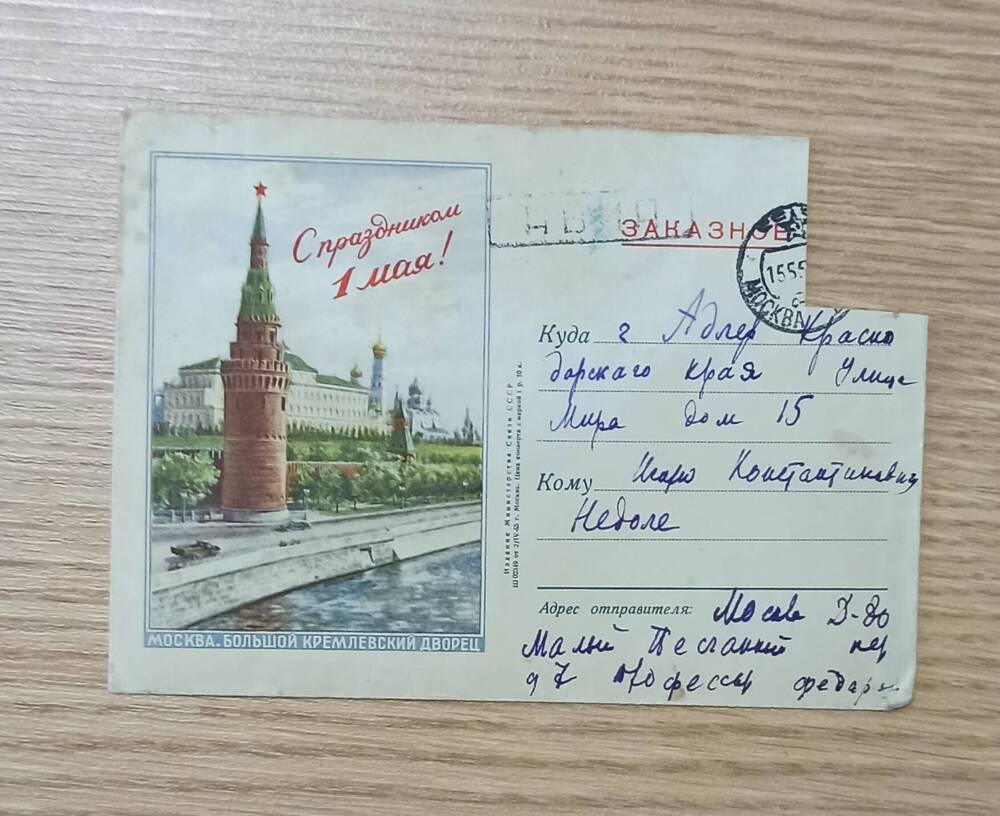 С праздником
1 мая!
МОСКВА. БОЛЬШОЙ КРЕМЛЕВСКИЙ ДВОРЕЦ
Издание Министерства Связи СССР
г. Москва. Цена конверта с маркой 1 р. 10 к.
ЗАКАЗНОЕ
МОСКВА
Куда г Адлер Красно
дарскаго края Улица
Мира дом 15
Кому Игорю Константиновичу
Недоле
Адрес отправителя: Москва Д-80
Малый Песчаный пер
д 7 Профессор